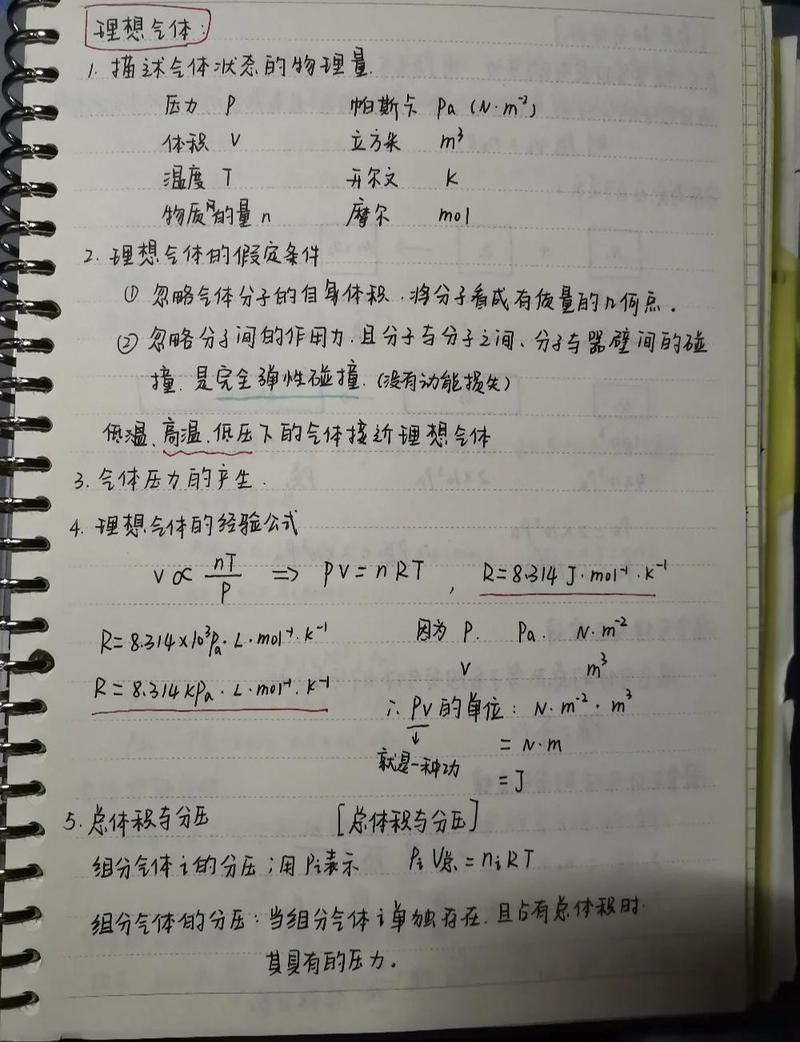 理想气体:
1. 描述气体状态的物理量.
压力 P 帕斯卡 Pa (N·m⁻²)
体积 V 立方米 m³
温度 T 开尔文 K
物质的量 n 摩尔 mol
2. 理想气体的假定条件
① 忽略气体分子的自身体积, 将分子看成有质量的几何点.
② 忽略分子间的作用力, 且分子与分子之间、分子与器壁间的碰
撞, 是完全弹性碰撞. (没有动能损失)
低温、高温、低压下的气体接近理想气体
3. 气体压力的产生.
4. 理想气体的经验公式
V ∝ nT/P ⇒ PV = nRT , R=8.314 J·mol⁻¹·K⁻¹
R=8.314×10³Pa·L·mol⁻¹·K⁻¹ 因为 P. Pa. N·m⁻²
V m³
R=8.314KPa·L·mol⁻¹·K⁻¹
∴ PV 的单位: N·m⁻²·m³
↓ = N·m
就是一种功
= J
5. 总体积与分压 [总体积与分压]
组分气体i的分压; 用Pi表示 Pi V总 = niRT
组分气体的分压: 当组分气体i单独存在, 且占有总体积时.
其具有的压力.